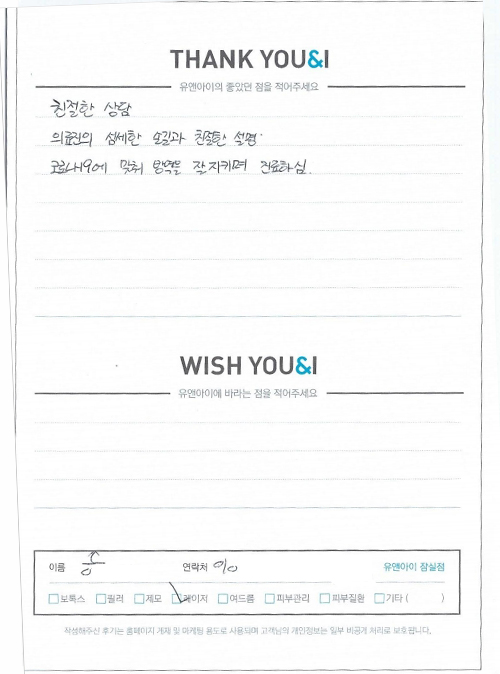 THANK YOU&I
유앤아이의 좋았던 점을 적어주세요
친절한 상담
의료진의 섬세한 손길과 친절한 설명.
코로나19에 맞춰 방역을 잘 지키며 진료하심.
WISH YOU&I
유앤아이에 바라는 점을 적어주세요
이름 홍 연락처 010 유앤아이 잠실점
보톡스 필러 제모 레이저 여드름 피부관리 피부질환 기타 ( )
작성해주신 후기는 홈페이지 게재 및 마케팅 용도로 사용되며 고객님의 개인정보는 일부 비공개 처리로 보호됩니다.